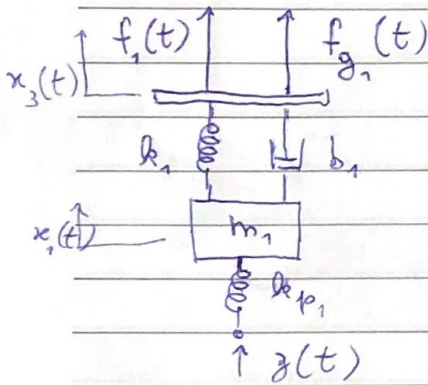 f₁(t) f_g₁(t)
x₃(t)
k₁ b₁
x₁(t) m₁
k_p₁
z(t)